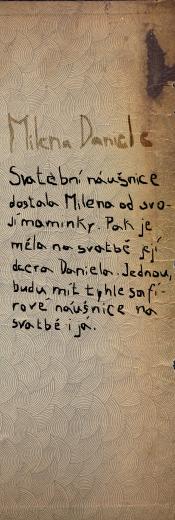 Milena Daniela
Svatební náušnice
dostala Milena od svo-
jí maminky. Pak je
měla na svatbě její
dcera Daniela. Jednou,
budu mít tyhle safí-
rové náušnice na
svatbě i já.